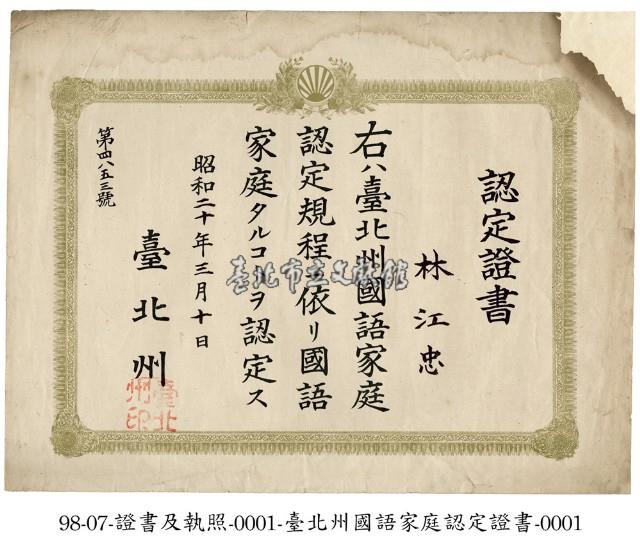 認定證書
林江忠
右ハ臺北州國語家庭
認定規程ニ依リ國語
家庭タルコトヲ認定ス
昭和二十年三月十日
臺北州
臺北州印
第四八五三號
臺北市立文獻館
98-07-證書及執照-0001-臺北州國語家庭認定證書-0001